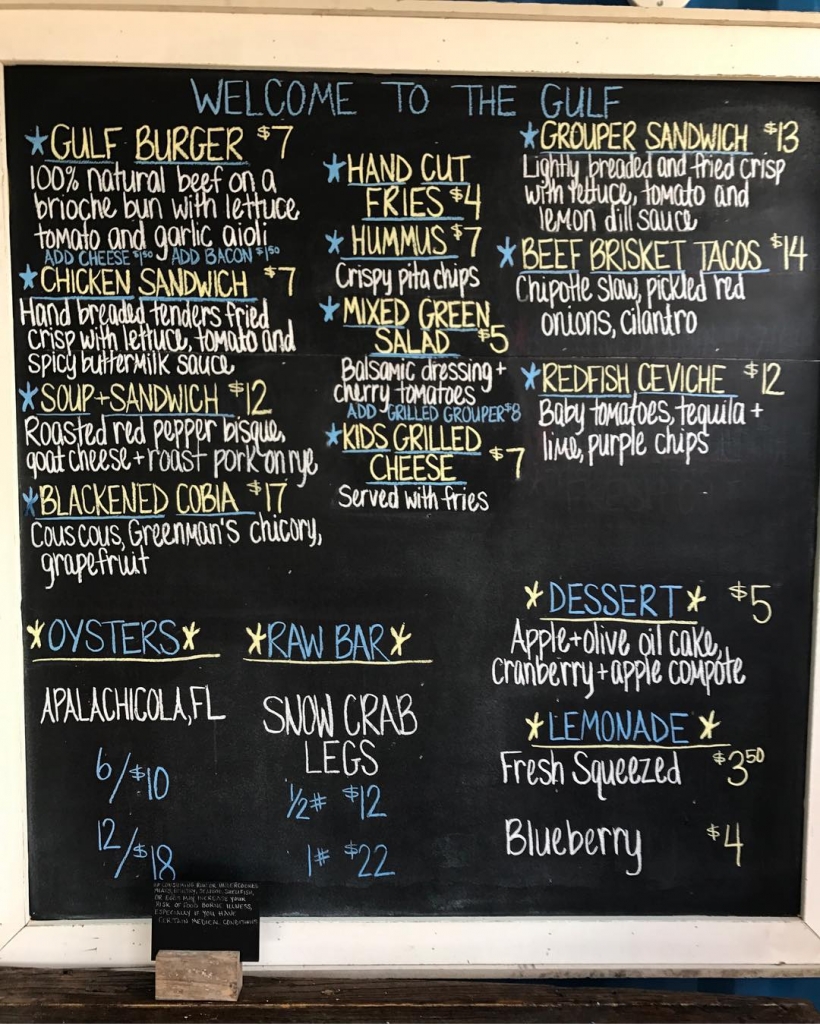 WELCOME TO THE GULF
GULF BURGER $7
100% natural beef on a
brioche bun with lettuce,
tomato and garlic aioli
ADD CHEESE $1.50 ADD BACON $1.50
CHICKEN SANDWICH $7
Hand breaded tenders fried
crisp with lettuce, tomato and
spicy buttermilk sauce
SOUP+SANDWICH $12
Roasted red pepper bisque,
goat cheese + roast pork on rye
BLACKENED COBIA $17
Couscous, Greenman's chicory,
grapefruit
HAND CUT
FRIES $4
HUMMUS $7
Crispy pita chips
MIXED GREEN
SALAD $5
Balsamic dressing +
cherry tomatoes
ADD GRILLED GROUPER $8
KIDS GRILLED
CHEESE $7
Served with fries
GROUPER SANDWICH $13
Lightly breaded and fried crisp
with lettuce, tomato and
lemon dill sauce
BEEF BRISKET TACOS $14
Chipotle slaw, pickled red
onions, cilantro
REDFISH CEVICHE $12
Baby tomatoes, tequila +
lime, purple chips
OYSTERS
APALACHICOLA, FL
6/$10
12/$18
RAW BAR
SNOW CRAB
LEGS
1/2# $12
1# $22
DESSERT $5
Apple+olive oil cake,
cranberry+apple compote
LEMONADE
Fresh Squeezed $3.50
Blueberry $4
CONSUMING RAW OR UNDERCOOKED
MEATS, POULTRY, SEAFOOD, SHELLFISH,
OR EGGS MAY INCREASE YOUR
RISK OF FOOD BORNE ILLNESS,
ESPECIALLY IF YOU HAVE
CERTAIN MEDICAL CONDITIONS